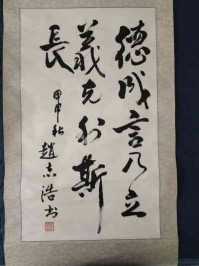 德成言乃立
義在利斯
長
甲申秋
趙志浩书